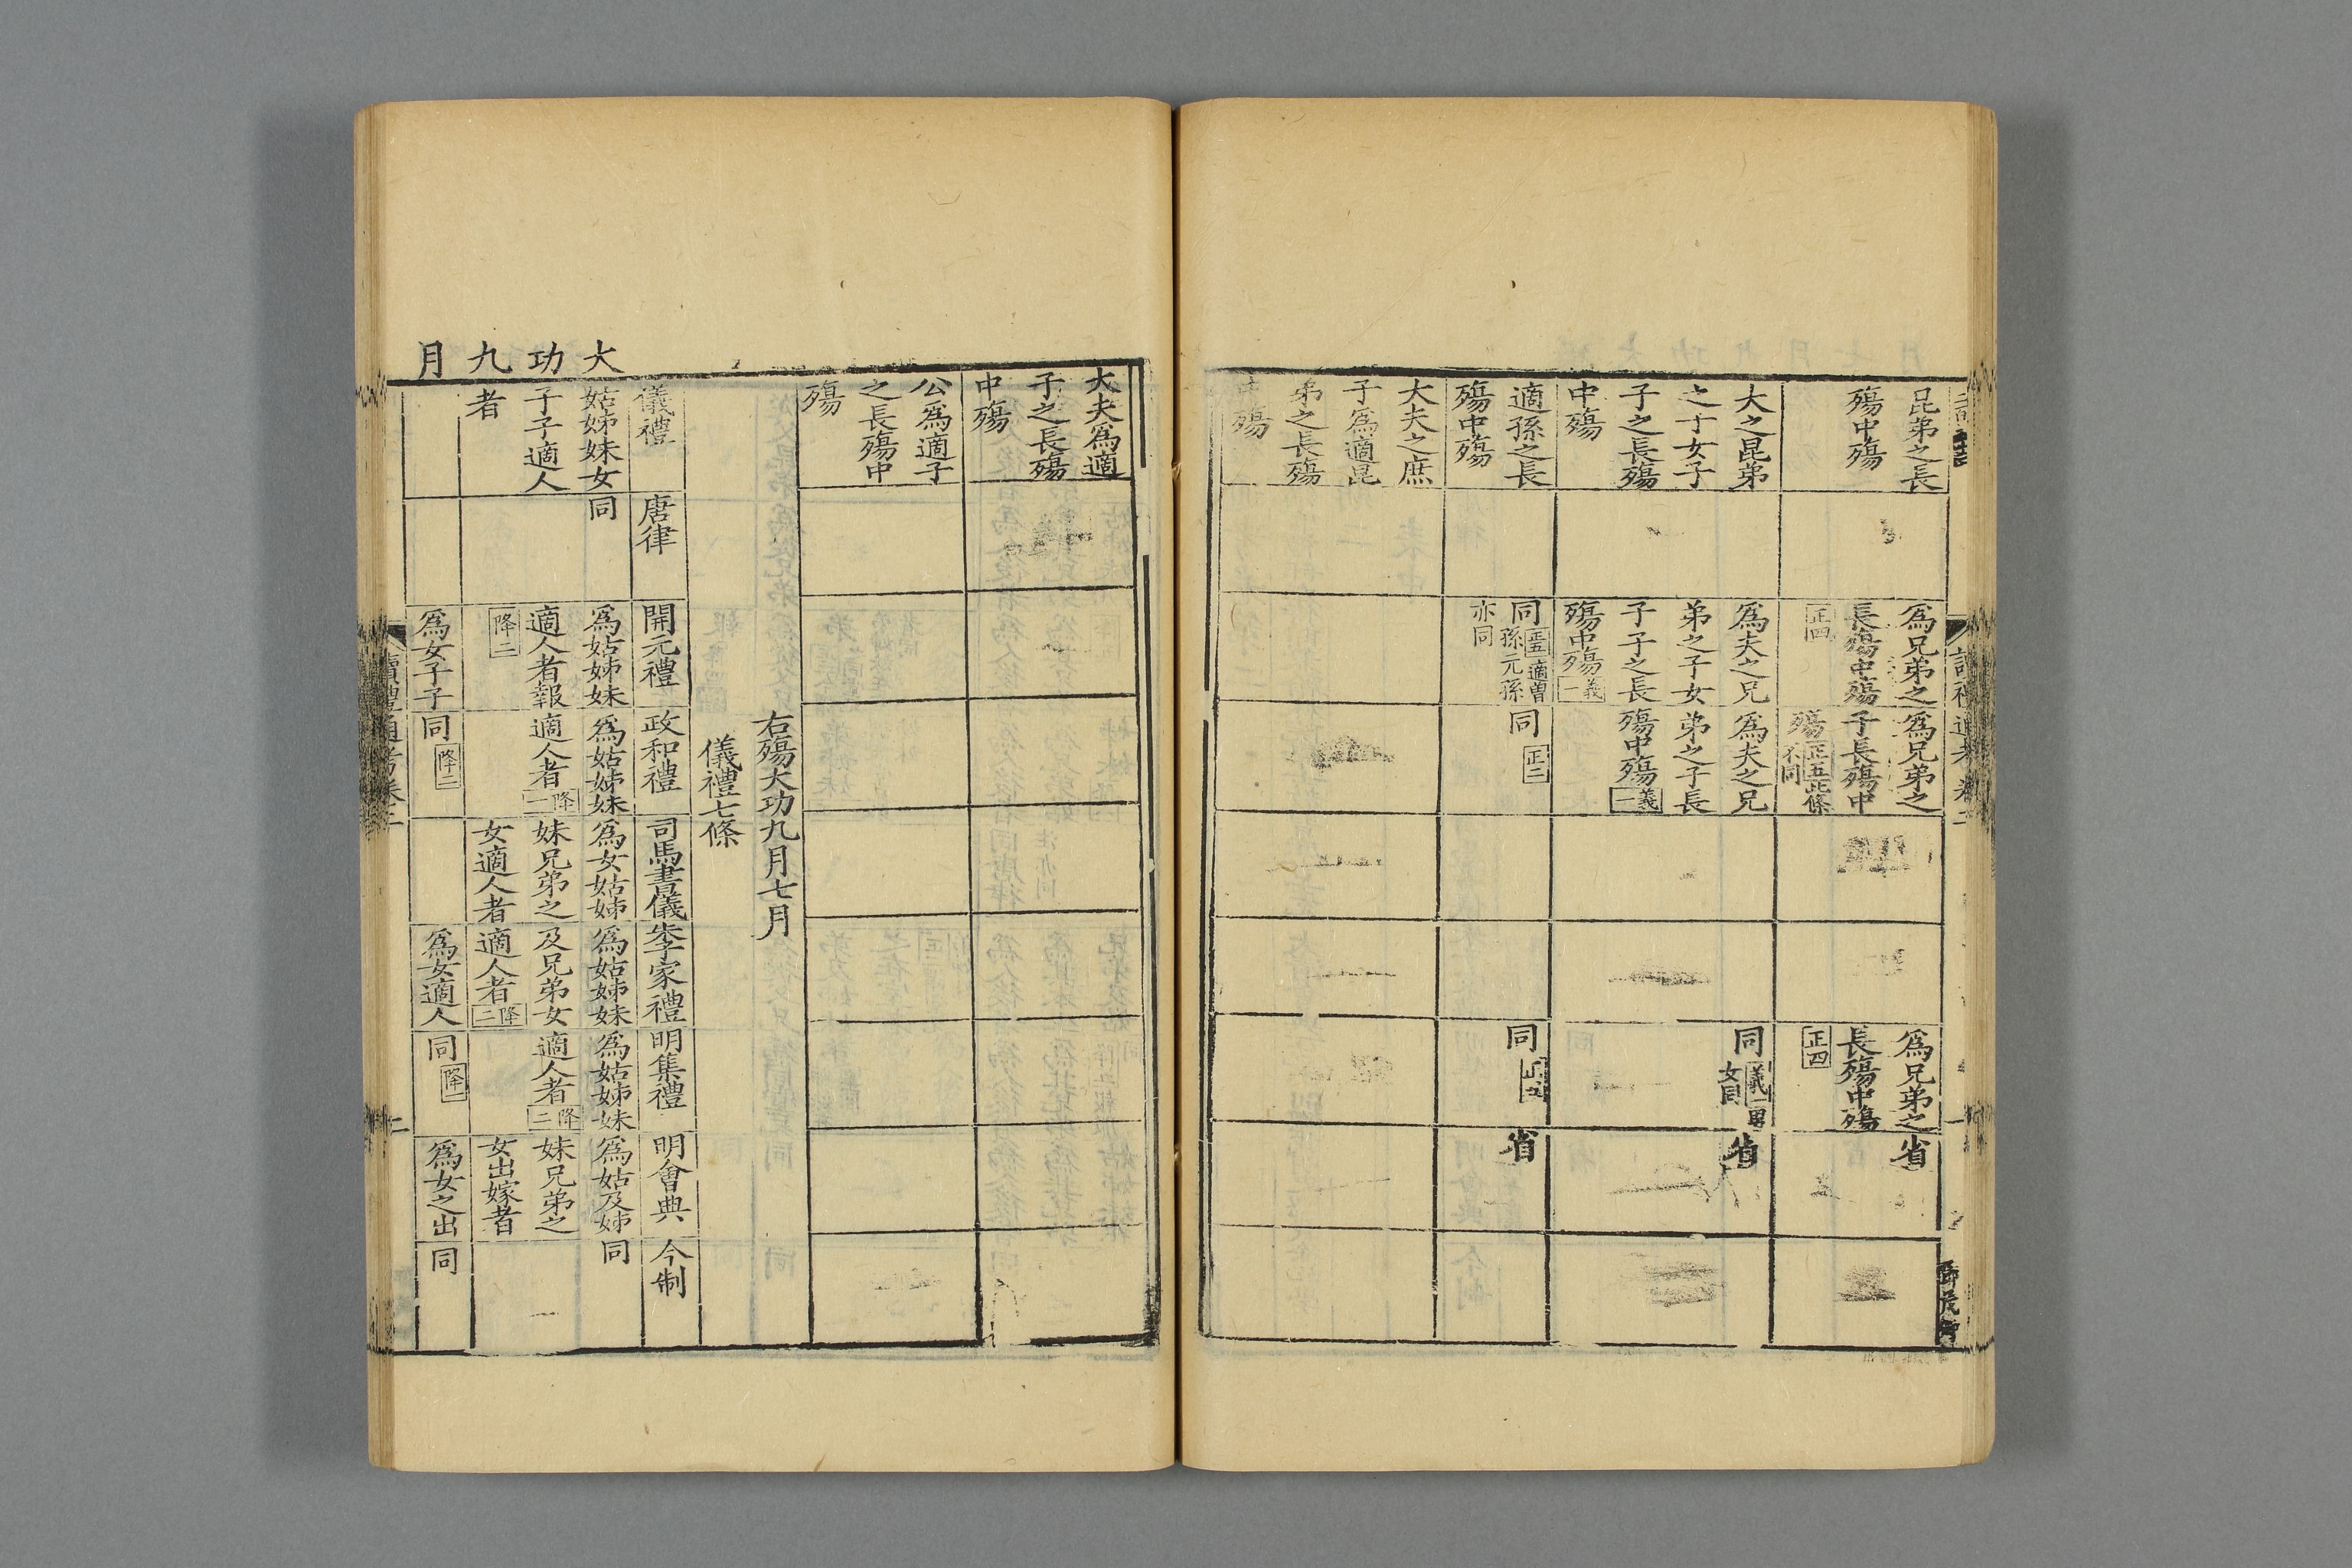 昆弟之長
殤中殤
爲兄弟之
長殤中殤
正四
爲兄弟之
子長殤中
殤正五此條
不同
爲兄弟之
長殤中殤
正四
省
夫之昆弟
之子女子
子之長殤
中殤
爲夫之兄
弟之子女
子子之長
殤中殤義一
爲夫之兄
弟之子長
殤中殤義一
同義一男
女同
省
適孫之長
殤中殤
同正五適曾
孫元孫
亦同
同正二
同正五
省
大夫之庶
子爲適昆
弟之長殤
中殤
大夫爲適
子之長殤
中殤
公爲適子
之長殤中
殤
右殤大功九月七月
儀禮七條
大功九月
儀禮
唐律
開元禮
政和禮
司馬書儀
朱子家禮
明集禮
明會典
今制
姑姊妹女
子子適人
者
同
爲姑姊妹
適人者報
降二
爲姑姊妹
適人者降一
爲女姑姊
妹兄弟之
女適人者
爲姑姊妹
及兄弟女
適人者降二
爲姑姊妹
適人者降二
爲姑及姊
妹兄弟之
女出嫁者
同
爲女子子
同降二
爲女適人
同降一
爲女之出
同
讀禮通考卷二
二